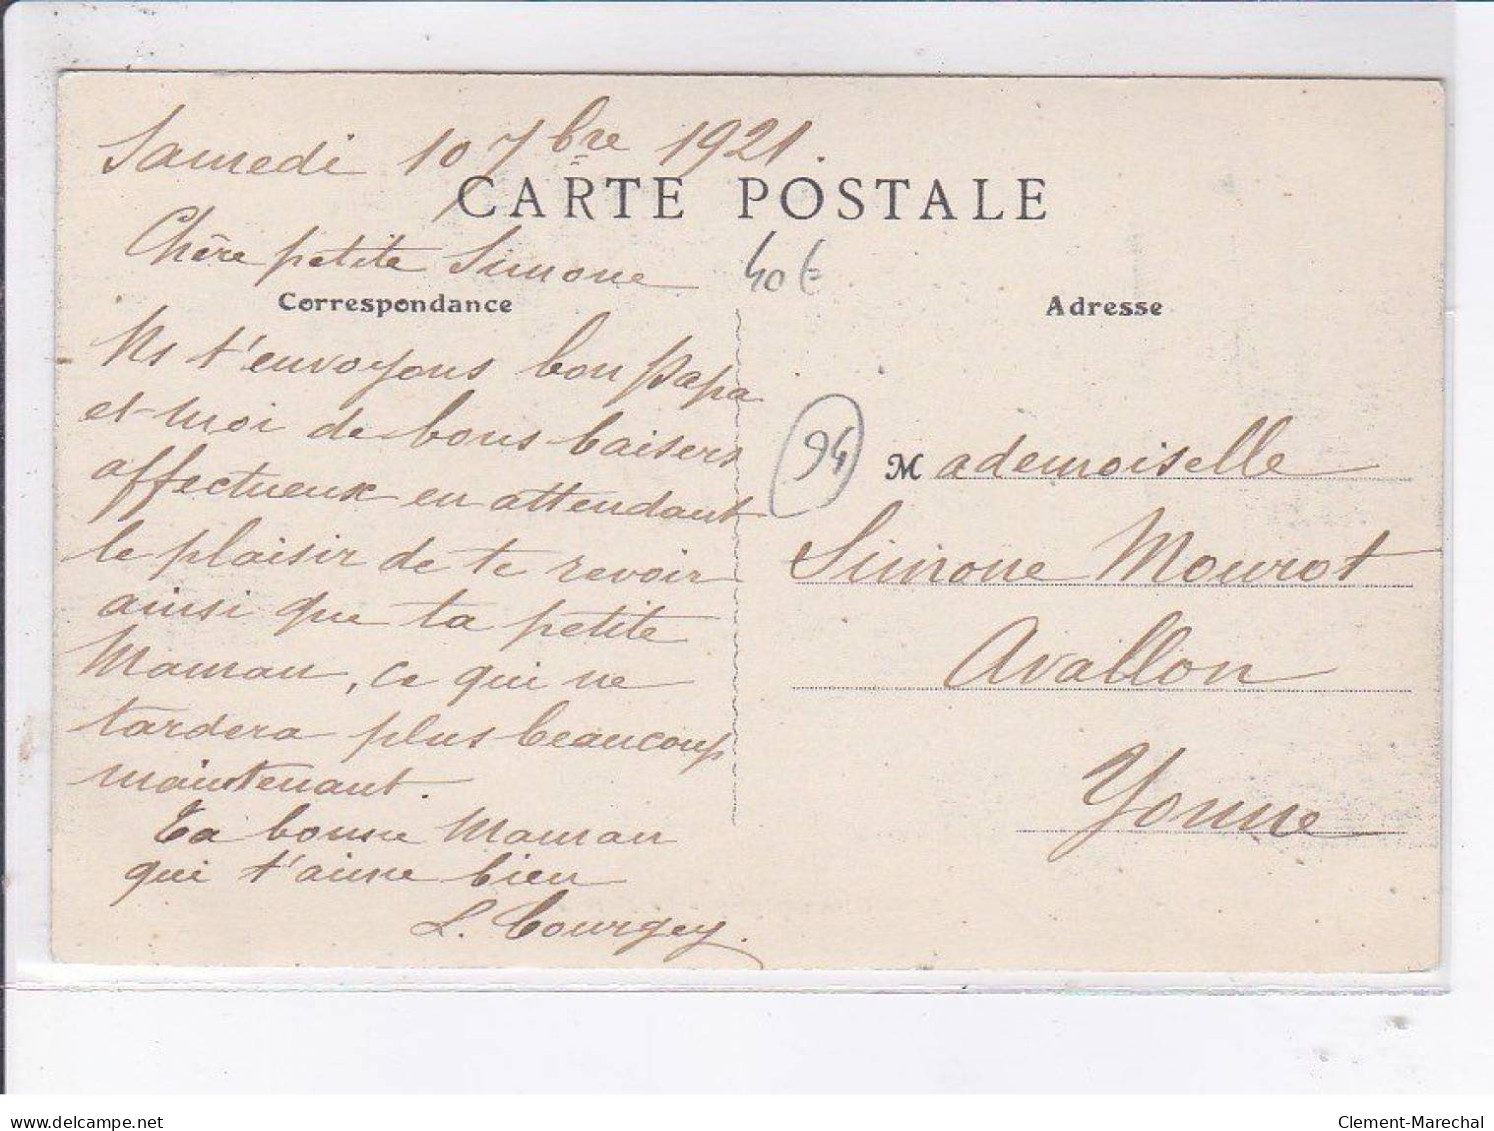 Samedi 10 7bre 1921.
CARTE POSTALE
Chère petite Simone
40 €
Correspondance
Ns t'envoyons bon Papa
et moi de bons baisers
affectueux en attendant
le plaisir de te revoir
ainsi que ta petite
Maman, ce qui ne
tardera plus beaucoup
maintenant.
Ta bonne Maman
qui t'aime bien
L. Courgey.
Adresse
94
Mademoiselle
Simone Mourot
Avallon
Yonne
www.delcampe.net
Clement-Marechal